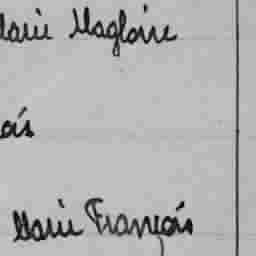 Marie Magloire
ois
Marie François